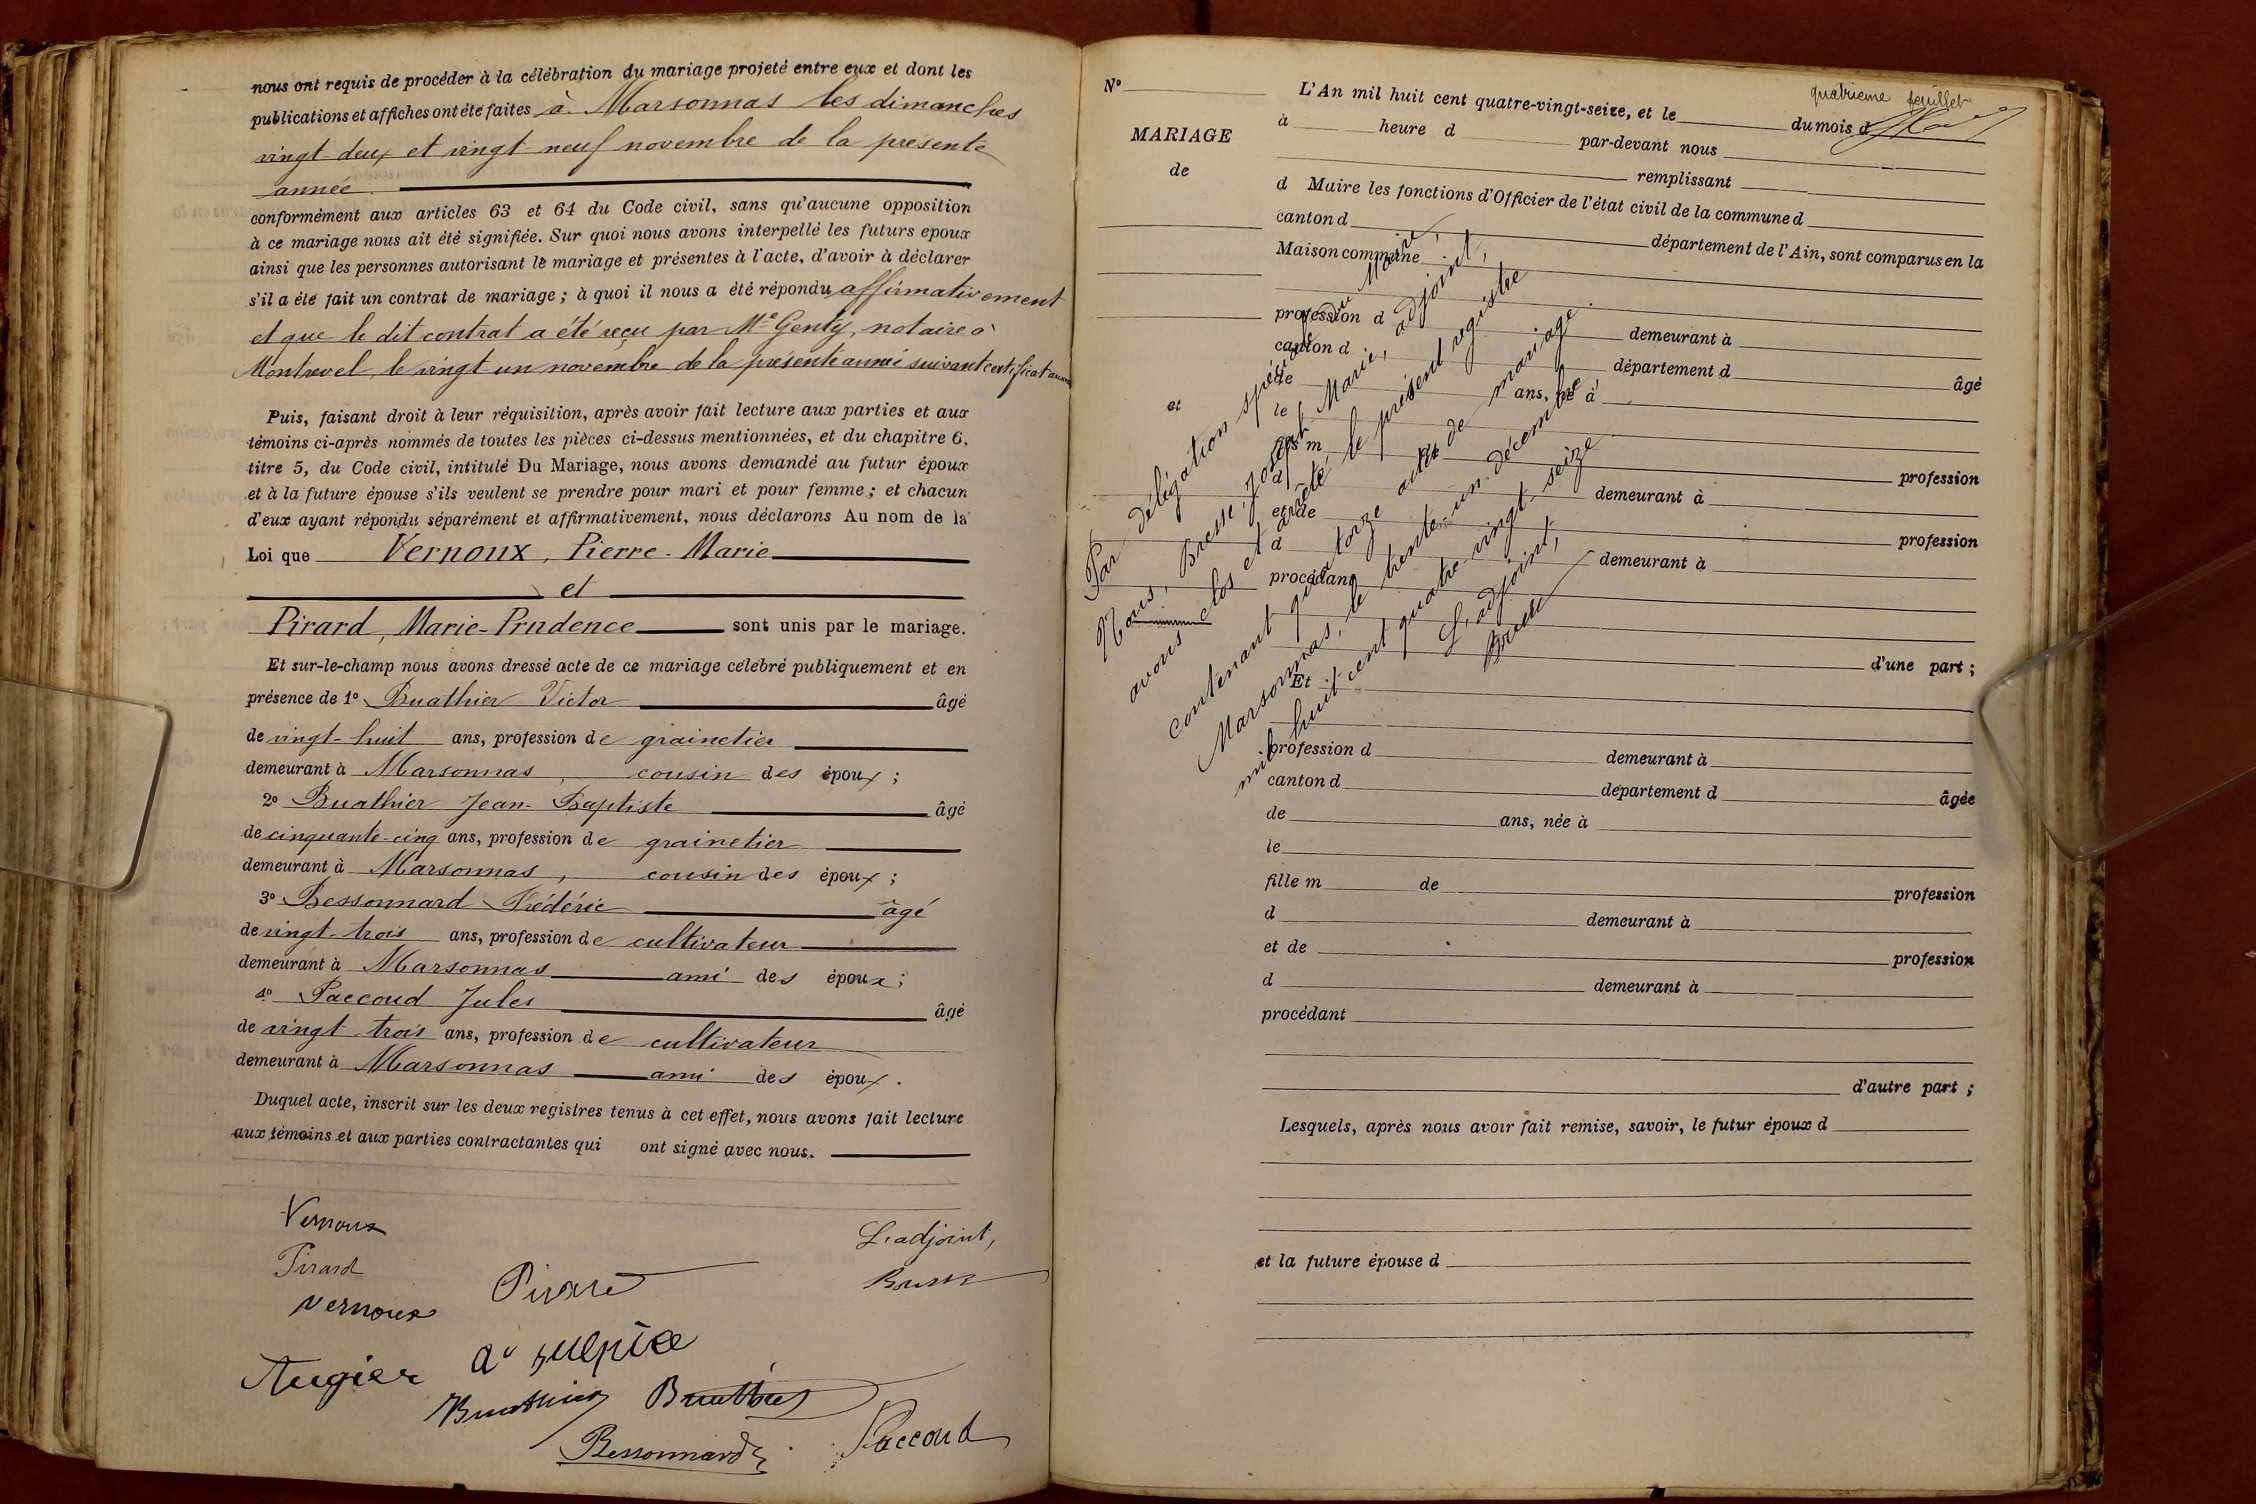 nous ont requis de procéder à la célébration du mariage projeté entre eux et dont les
publications et affiches ont été faites à Marsonnas les dimanches
vingt-deux et vingt-neuf novembre de la présente
année.
conformément aux articles 63 et 64 du Code civil, sans qu'aucune opposition
à ce mariage nous ait été signifiée. Sur quoi nous avons interpellé les futurs epoux
ainsi que les personnes autorisant le mariage et présentes à l'acte, d'avoir à déclarer
s'il a été fait un contrat de mariage; à quoi il nous a été répondu affirmativement
et que le dit contrat a été reçu par Me Genty, notaire à
Montrevel, le vingt un novembre de la présente année suivant certificat
Puis, faisant droit à leur réquisition, après avoir fait lecture aux parties et aux
témoins ci-après nommés de toutes les pièces ci-dessus mentionnées, et du chapitre 6,
titre 5, du Code civil, intitulé Du Mariage, nous avons demandé au futur époux
et à la future épouse s'ils veulent se prendre pour mari et pour femme; et chacun
d'eux ayant répondu séparément et affirmativement, nous déclarons Au nom de la
Loi que Vernoux, Pierre-Marie
et
Pirard, Marie-Prudence sont unis par le mariage.
Et sur-le-champ nous avons dressé acte de ce mariage célébré publiquement et en
présence de 1° Buathier Victor âgé
de vingt-huit ans, profession de grainetier
demeurant à Marsonnas, cousin des époux;
2° Buathier Jean-Baptiste âgé
de cinquante-cinq ans, profession de grainetier
demeurant à Marsonnas, cousin des époux;
3° Bessonnard Frédéric âgé
de vingt-trois ans, profession de cultivateur
demeurant à Marsonnas ami des époux;
4° Paccoud Jules âgé
de vingt trois ans, profession de cultivateur
demeurant à Marsonnas ami des époux.
Duquel acte, inscrit sur les deux registres tenus à cet effet, nous avons fait lecture
aux témoins et aux parties contractantes qui ont signé avec nous.
Vernoux
L'adjoint,
Pirard
Pirard
Vernoux
Augier
Buathier Buathier
Bessonnard
Paccoud
quatrième feuillet
N°
L'An mil huit cent quatre-vingt-seize, et le du mois d
à heure d par-devant nous
MARIAGE
remplissant
de
d Maire les fonctions d'Officier de l'état civil de la commune d
canton d département de l'Ain, sont comparus en la
Maison commune
profession d demeurant à
canton d département d âgé
de ans, né à
et
le
fils m
profession
d demeurant à
et de profession
d demeurant à
procédant
d'une part;
Et
profession d demeurant à
canton d département d âgée
de ans, née à
le
fille m de profession
d demeurant à
et de profession
d demeurant à
procédant
d'autre part;
Lesquels, après nous avoir fait remise, savoir, le futur époux d
et la future épouse d
Par délégation spéciale du Maire,
Nous, Bresse, Joseph Marie, adjoint,
avons clos et arrêté le présent registre
contenant quatorze actes de mariage.
Marsonnas, le trente-un décembre
mil huit cent quatre-vingt-seize
L'adjoint,